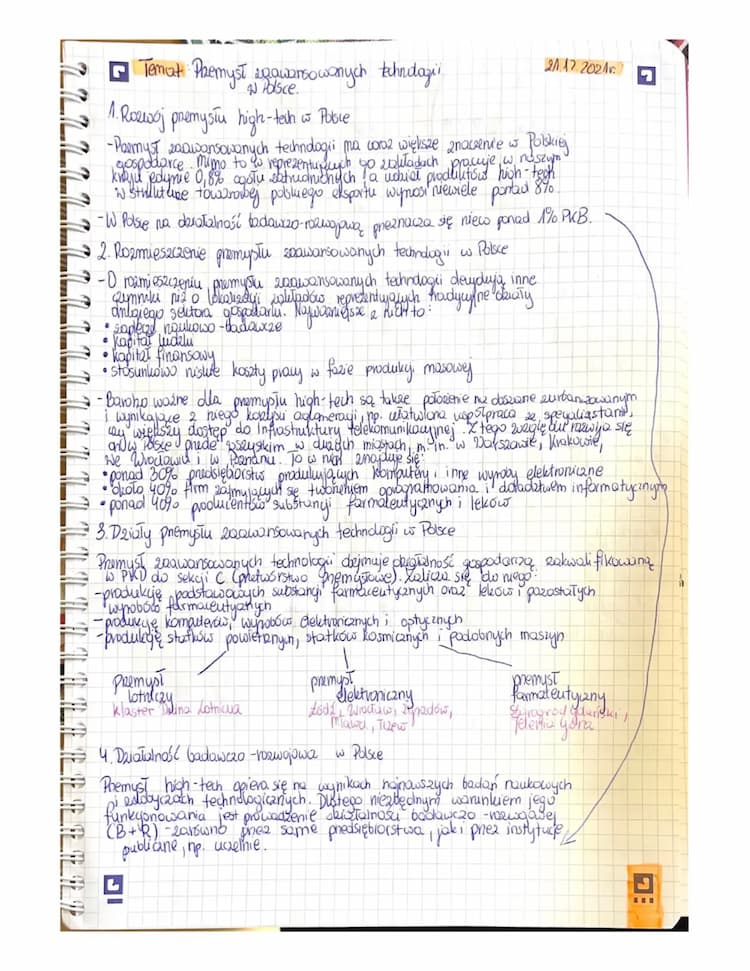 Temat: Przemysł zaawansowanych technologii
w Polsce.
21.12.2021r.
1. Rozwój przemysłu high-tech w Polsce
-Przemysł zaawansowanych technologii ma coraz większe znaczenie w Polskiej
gospodarce. Mimo to w reprezentujących go zakładach pracuje w naszym
kraju jedynie 0,8% ogółu zatrudnionych, a udział produktów high-tech
w strukturze towarowej polskiego eksportu wynosi niewiele ponad 8%.
-W Polsce na działalność badawczo-rozwojową przeznacza się nieco ponad 1% PKB.
2. Rozmieszczenie przemysłu zaawansowanych technologii w Polsce
-O rozmieszczeniu przemysłu zaawansowanych technologii decydują inne
czynniki niż o lokalizacji zakładów reprezentujących tradycyjne działy
drugiego sektora gospodarki. Najważniejsze z nich to:
• zaplecze naukowo-badawcze
• kapitał ludzki
• kapitał finansowy
• stosunkowo niskie koszty pracy w fazie produkcji masowej
-Bardzo ważne dla przemysłu high-tech są także położenie na obszarze zurbanizowanym
i wynikające z niego korzyści aglomeracji, np. ułatwiona współpraca ze specjalistami,
czy większy dostęp do infrastruktury telekomunikacyjnej. Z tego względu rozwija się
on w Polsce przede wszystkim w dużych miastach, m.in. w Warszawie, Krakowie,
we Wrocławiu i w Poznaniu. To w nich znajduje się:
• ponad 30% przedsiębiorstw produkujących komputery i inne wyroby elektroniczne
• około 40% firm zajmujących się tworzeniem oprogramowania i doradztwem informatycznym
• ponad 40% producentów substancji farmaceutycznych i leków
3. Działy przemysłu zaawansowanych technologii w Polsce
Przemysł zaawansowanych technologii obejmuje działalność gospodarczą zakwalifikowaną
w PKD do sekcji C (przetwórstwo przemysłowe). Zalicza się do niego:
-produkcję podstawowych substancji farmaceutycznych oraz leków i pozostałych
wyrobów farmaceutycznych
-produkcję komputerów, wyrobów elektronicznych i optycznych
-produkcję statków powietrznych, statków kosmicznych i podobnych maszyn
Przemysł
lotniczy
klaster Dolina Lotnicza
przemysł
elektroniczny
Łódź, Wrocław, Żyrardów,
Mława, Tczew
przemysł
farmaceutyczny
Starogard Gdański,
Jelenia Góra
4. Działalność badawczo-rozwojowa w Polsce
Przemysł high-tech opiera się na wynikach najnowszych badań naukowych
i zdobyczach technologicznych. Dlatego niezbędnym warunkiem jego
funkcjonowania jest prowadzenie działalności badawczo-rozwojowej
(B+R) -zarówno przez same przedsiębiorstwa, jak i przez instytucje
publiczne, np. uczelnie.